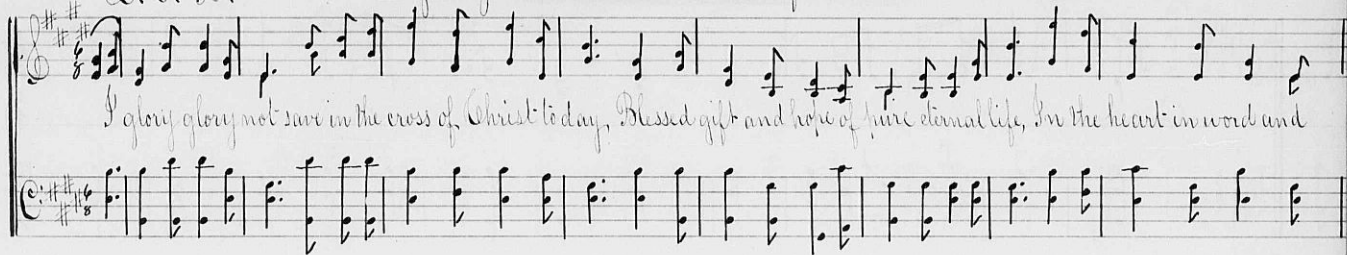 I glory glory not save in the cross of Christ to day, Blessed gift and hope of pure eternal life, In the heart in word and